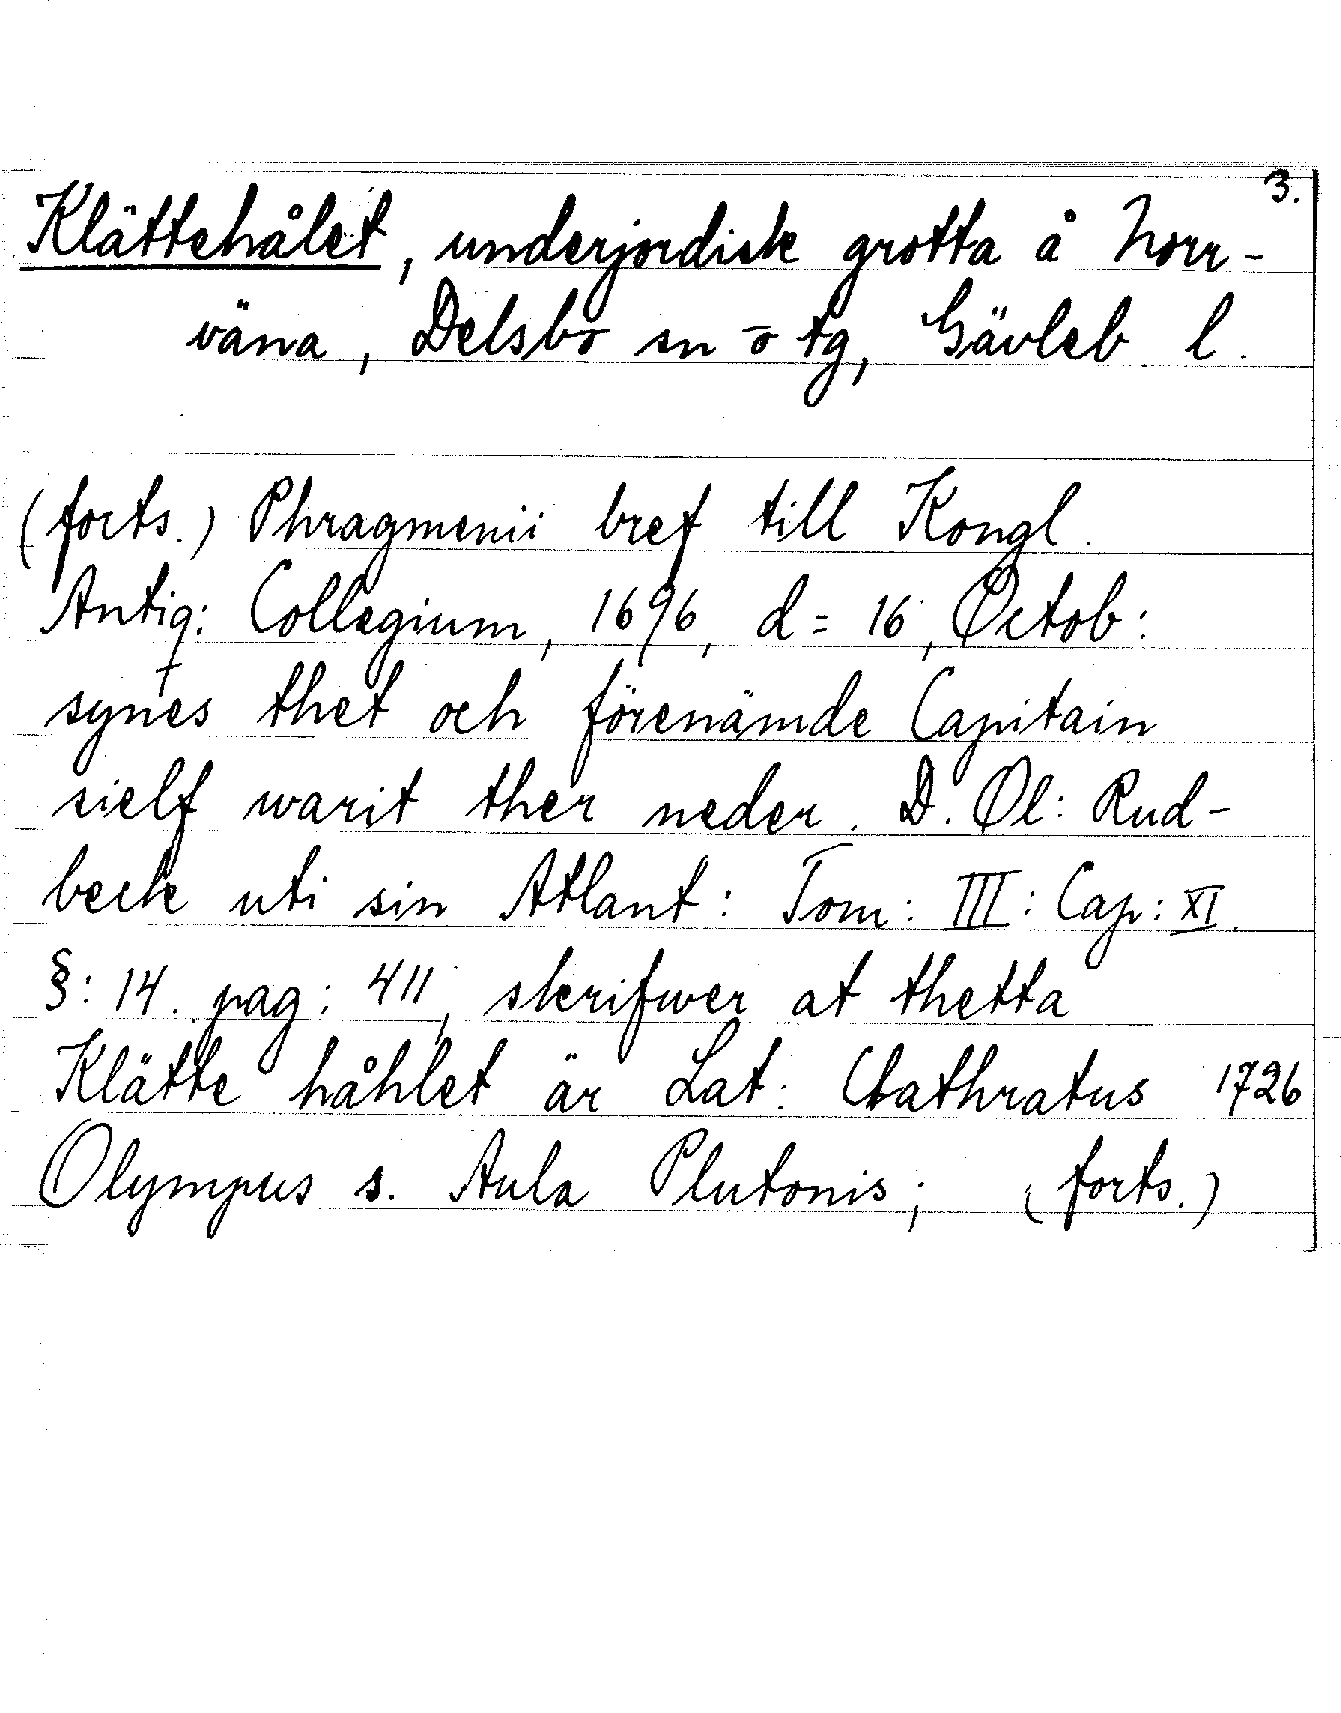 3.
Klättehålet, underjordisk grotta å Norr-
väna, Delsbo sn o tg, Gävleb l.
(forts.) Phragmenii bref till Kongl.
Antiq: Collegium, 1696, d = 16, Octob:
synes thet och förenämde Capitain
sielf warit ther neder. D. Ol: Rud-
beck uti sin Atlant: Tom: III: Cap: XI.
§: 14. pag: 411, skrifwer at thetta
Klätte håhlet är Lat: Clathratus 1726
Olympus s. Aula Plutonis; (forts.)